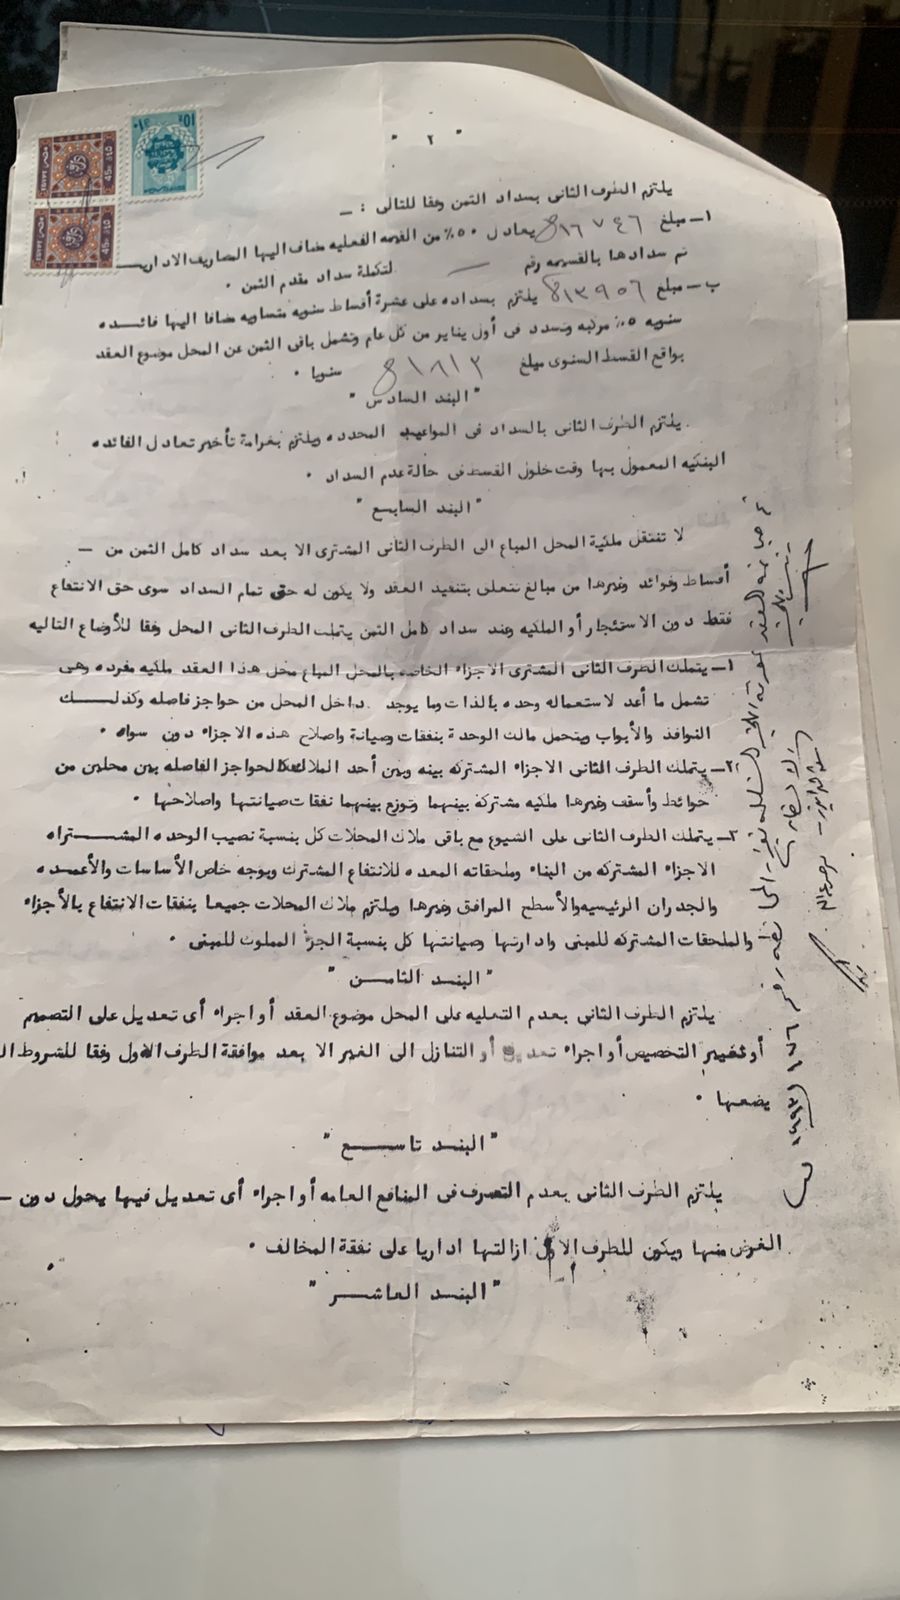 " ٢ "
يلتزم الطرف الثانى بسداد الثمن وفقا للتالى : ـ
١ــ مبلغ ١٦٧٤٦ يعادل ٥٠٪ من القيمه الفعليه مضاف اليها المصاريف الاداريــ
تم سدادها بالقسيمه رقم ــ لتكملة سداد مقدم الثمن ٠
ب ــ مبلغ ١٣٩٥٦ يلتزم بسداده على عشرة أقساط سنويه متساويه مضافا اليها فائــده
سنويه ٥٪ مركبه وتسدد فى أول يناير من كل عام وتشمل باقى الثمن عن المحل موضوع العقد
بواقع القسط السنوى مبلغ ١٨١٣ سنويا ٠
" البند السادس "
يلتزم الطرف الثانى بالسداد فى المواعيد المحدده ويلتزم بغرامة تأخير تعادل الفائده
البنكيه المعمول بها وقت حلول القسط فى حالة عدم السداد ٠
" البند السابع "
لا تنتقل ملكية المحل المباع الى الطرف الثانى المشترى الا بعد سداد كامل الثمن من ــ
أقساط وفوائد وغيرها من مبالغ تتعلق بتنفيذ العقد ولا يكون له حتى تمام السداد سوى حق الانتفاع
فقط دون الاستئجار أو الملكيه وعند سداد كامل الثمن يتملك الطرف الثانى المحل وفقا للأوضاع التاليه
١ــ يتملك الطرف الثانى المشترى الاجزاء الخاصه بالمحل المباع محل هذا العقد ملكيه مفرده وهى
تشمل ما أعد لاستعماله وحده بالذات وما يوجد داخل المحل من حواجز فاصله وكذلــك
النوافذ والأبواب ويتحمل مالك الوحدة بنفقات وصيانة واصلاح هذه الاجزاء دون سواه ٠
٢ــ يتملك الطرف الثانى الاجزاء المشتركه بينه وبين أحد الملاك كالحواجز الفاصله بين محلين من
حوائط وأسقف وغيرها ملكيه مشتركة بينهما وتوزع بينهما نفقات صيانتها واصلاحها ٠
٣ــ يتملك الطرف الثانى على الشيوع مع باقى ملاك المحلات كل بنسبة نصيب الوحده المشــتراه
الاجزاء المشتركه من البناء وملحقاته المعده للانتفاع المشترك وبوجه خاص الأساسات والأعمــده
والجدران الرئيسيه والأسطح المرافق وغيرها ويلتزم ملاك المحلات جميعا بنفقات الانتفاع بالأجزاء
والملحقات المشتركه للمبنى وادارتها وصيانتها كل بنسبة الجزء المملوك للمبنى ٠
" البنــد الثامــن "
يلتزم الطرف الثانى بعدم التعليه على المحل موضوع العقد أو اجراء أى تعديل على التصميم
أو تغيير التخصيص أو اجراء تعديل أو التنازل الى الغير الا بعد موافقة الطرف الاول وفقا للشروط ال
يضعها ٠
" البنــد تاســع "
يلتزم الطرف الثانى بعدم التصرف فى المنافع العامه أو اجراء أى تعديل فيها يحول دون ــ
الغرض منها ويكون للطرف الاول ازالتها اداريا على نفقة المخالف ٠
" البنــد العاشــر "